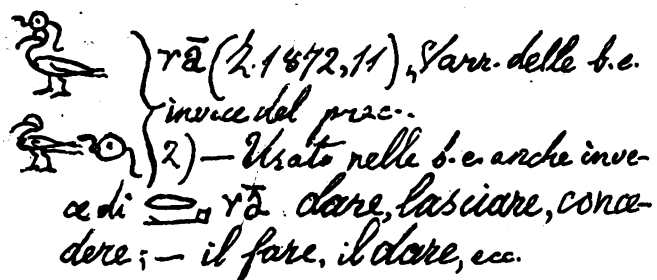 rā (Z. 1872, 11), Varr. delle b. e.
invece del prec..
2) — Usato nelle b. e. anche inve-
ce di rā dare, lasciare, conce-
dere; — il fare, il dare, ecc.